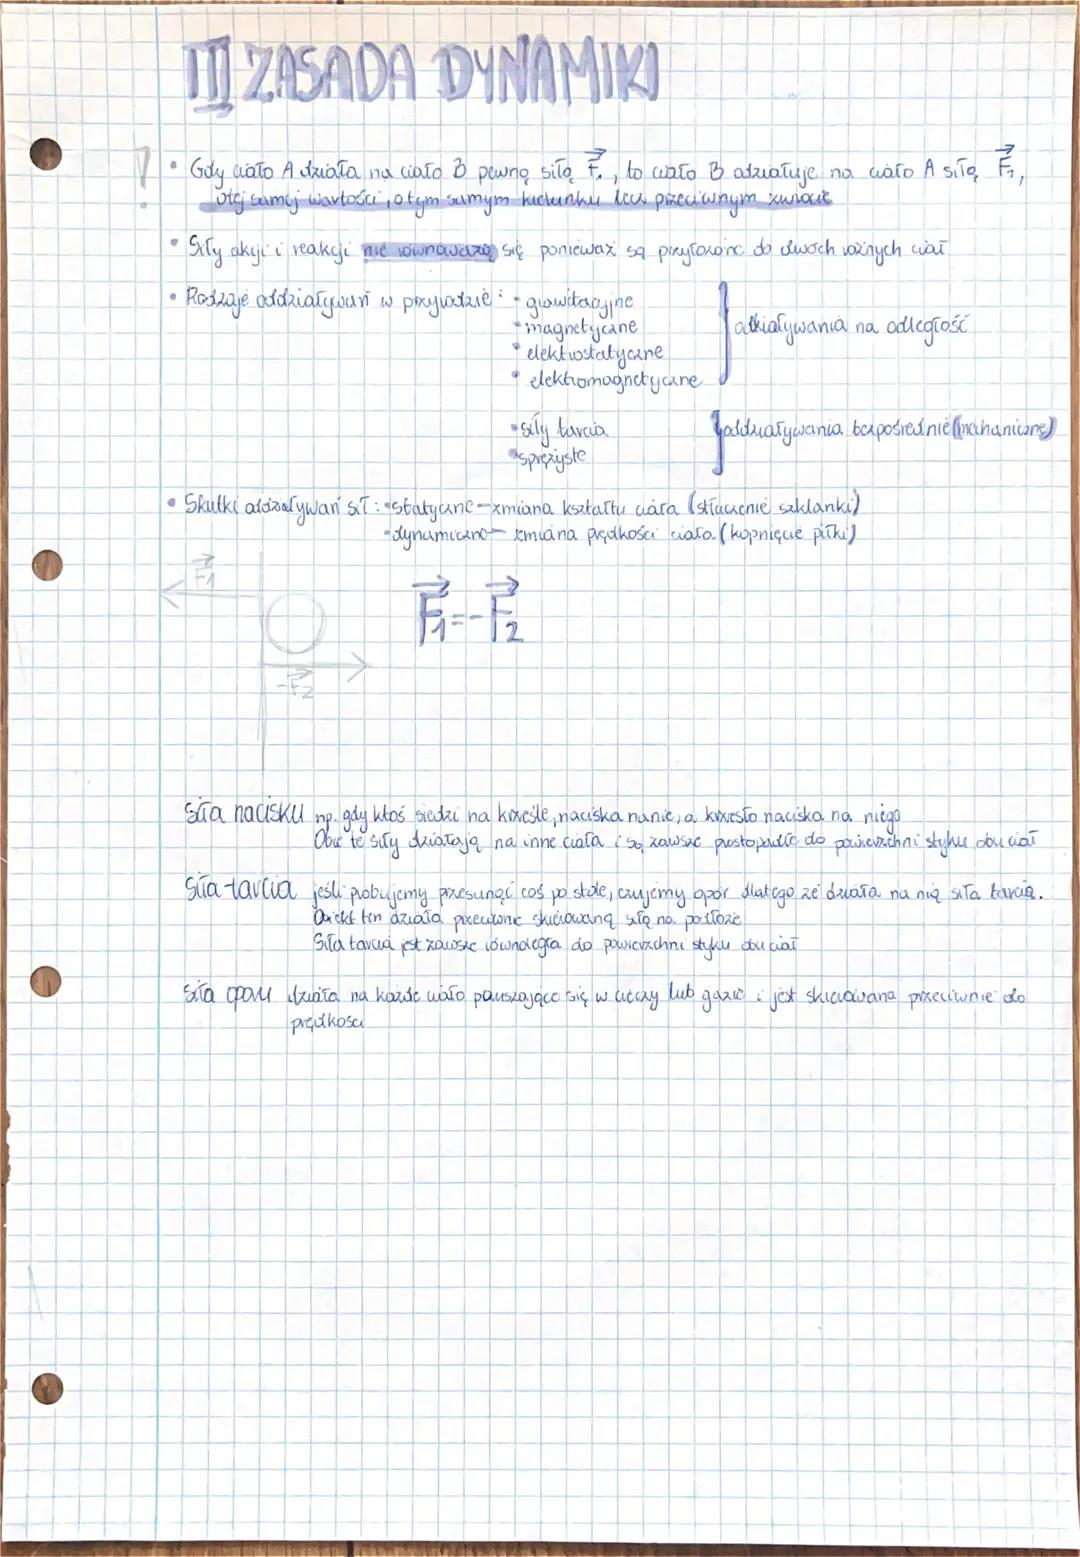 III ZASADA DYNAMIKI
! • Gdy ciało A działa na ciało B pewną siłą F⃗., to ciało B działuje na ciało A siłą F⃗₁,
o tej samej wartości, o tym samym kierunku lecz przeciwnym zwrocie
• Siły akcji i reakcji nie równoważą się ponieważ są przyłożone do dwoch różnych ciał
• Rodzaje oddziaływań w przyrodzie: • grawitacyjne
• magnetyczne
• elektrostatyczne
• elektromagnetyczne
oddziaływania na odległość
• siły tarcia
• sprężyste
oddziaływania bezpośrednie (mechaniczne)
• Skutki oddziaływań sił: • statyczne - zmiana kształtu ciała (stłuczenie szklanki)
• dynamiczne - zmiana prędkości ciała (kopnięcie piłki)
F⃗₁
F⃗₁ = -F⃗₂
-F⃗₂
siła nacisku np. gdy ktoś siedzi na krześle, naciska nanie, a krzesło naciska na niego
Obie te siły działają na inne ciała i są zawsze prostopadłe do powierzchni styku obu ciał
siła tarcia jeśli probujemy przesunąć coś po stole, czujemy opór dlatego ze działa na nią siła tarcia.
Obiekt ten działa przeciwnie skierowaną siłą na podłoże
Siła tarcia jest zawsze równoległa do powierzchni styku obu ciał
siła oporu działa na każde ciało poruszające się w cieczy lub gazie i jest skierowana przeciwnie do
prędkosci